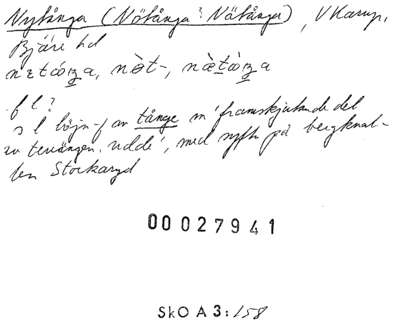 Nytånga (Nötånga? Nåtånga), V Karup,
Bjäre hd
f l?
s l böjn-f av tånge m' framskjutande del
av terrängen, udde', med syfte på bergknal-
len Stockaryd
00027941
SkO A 3:158